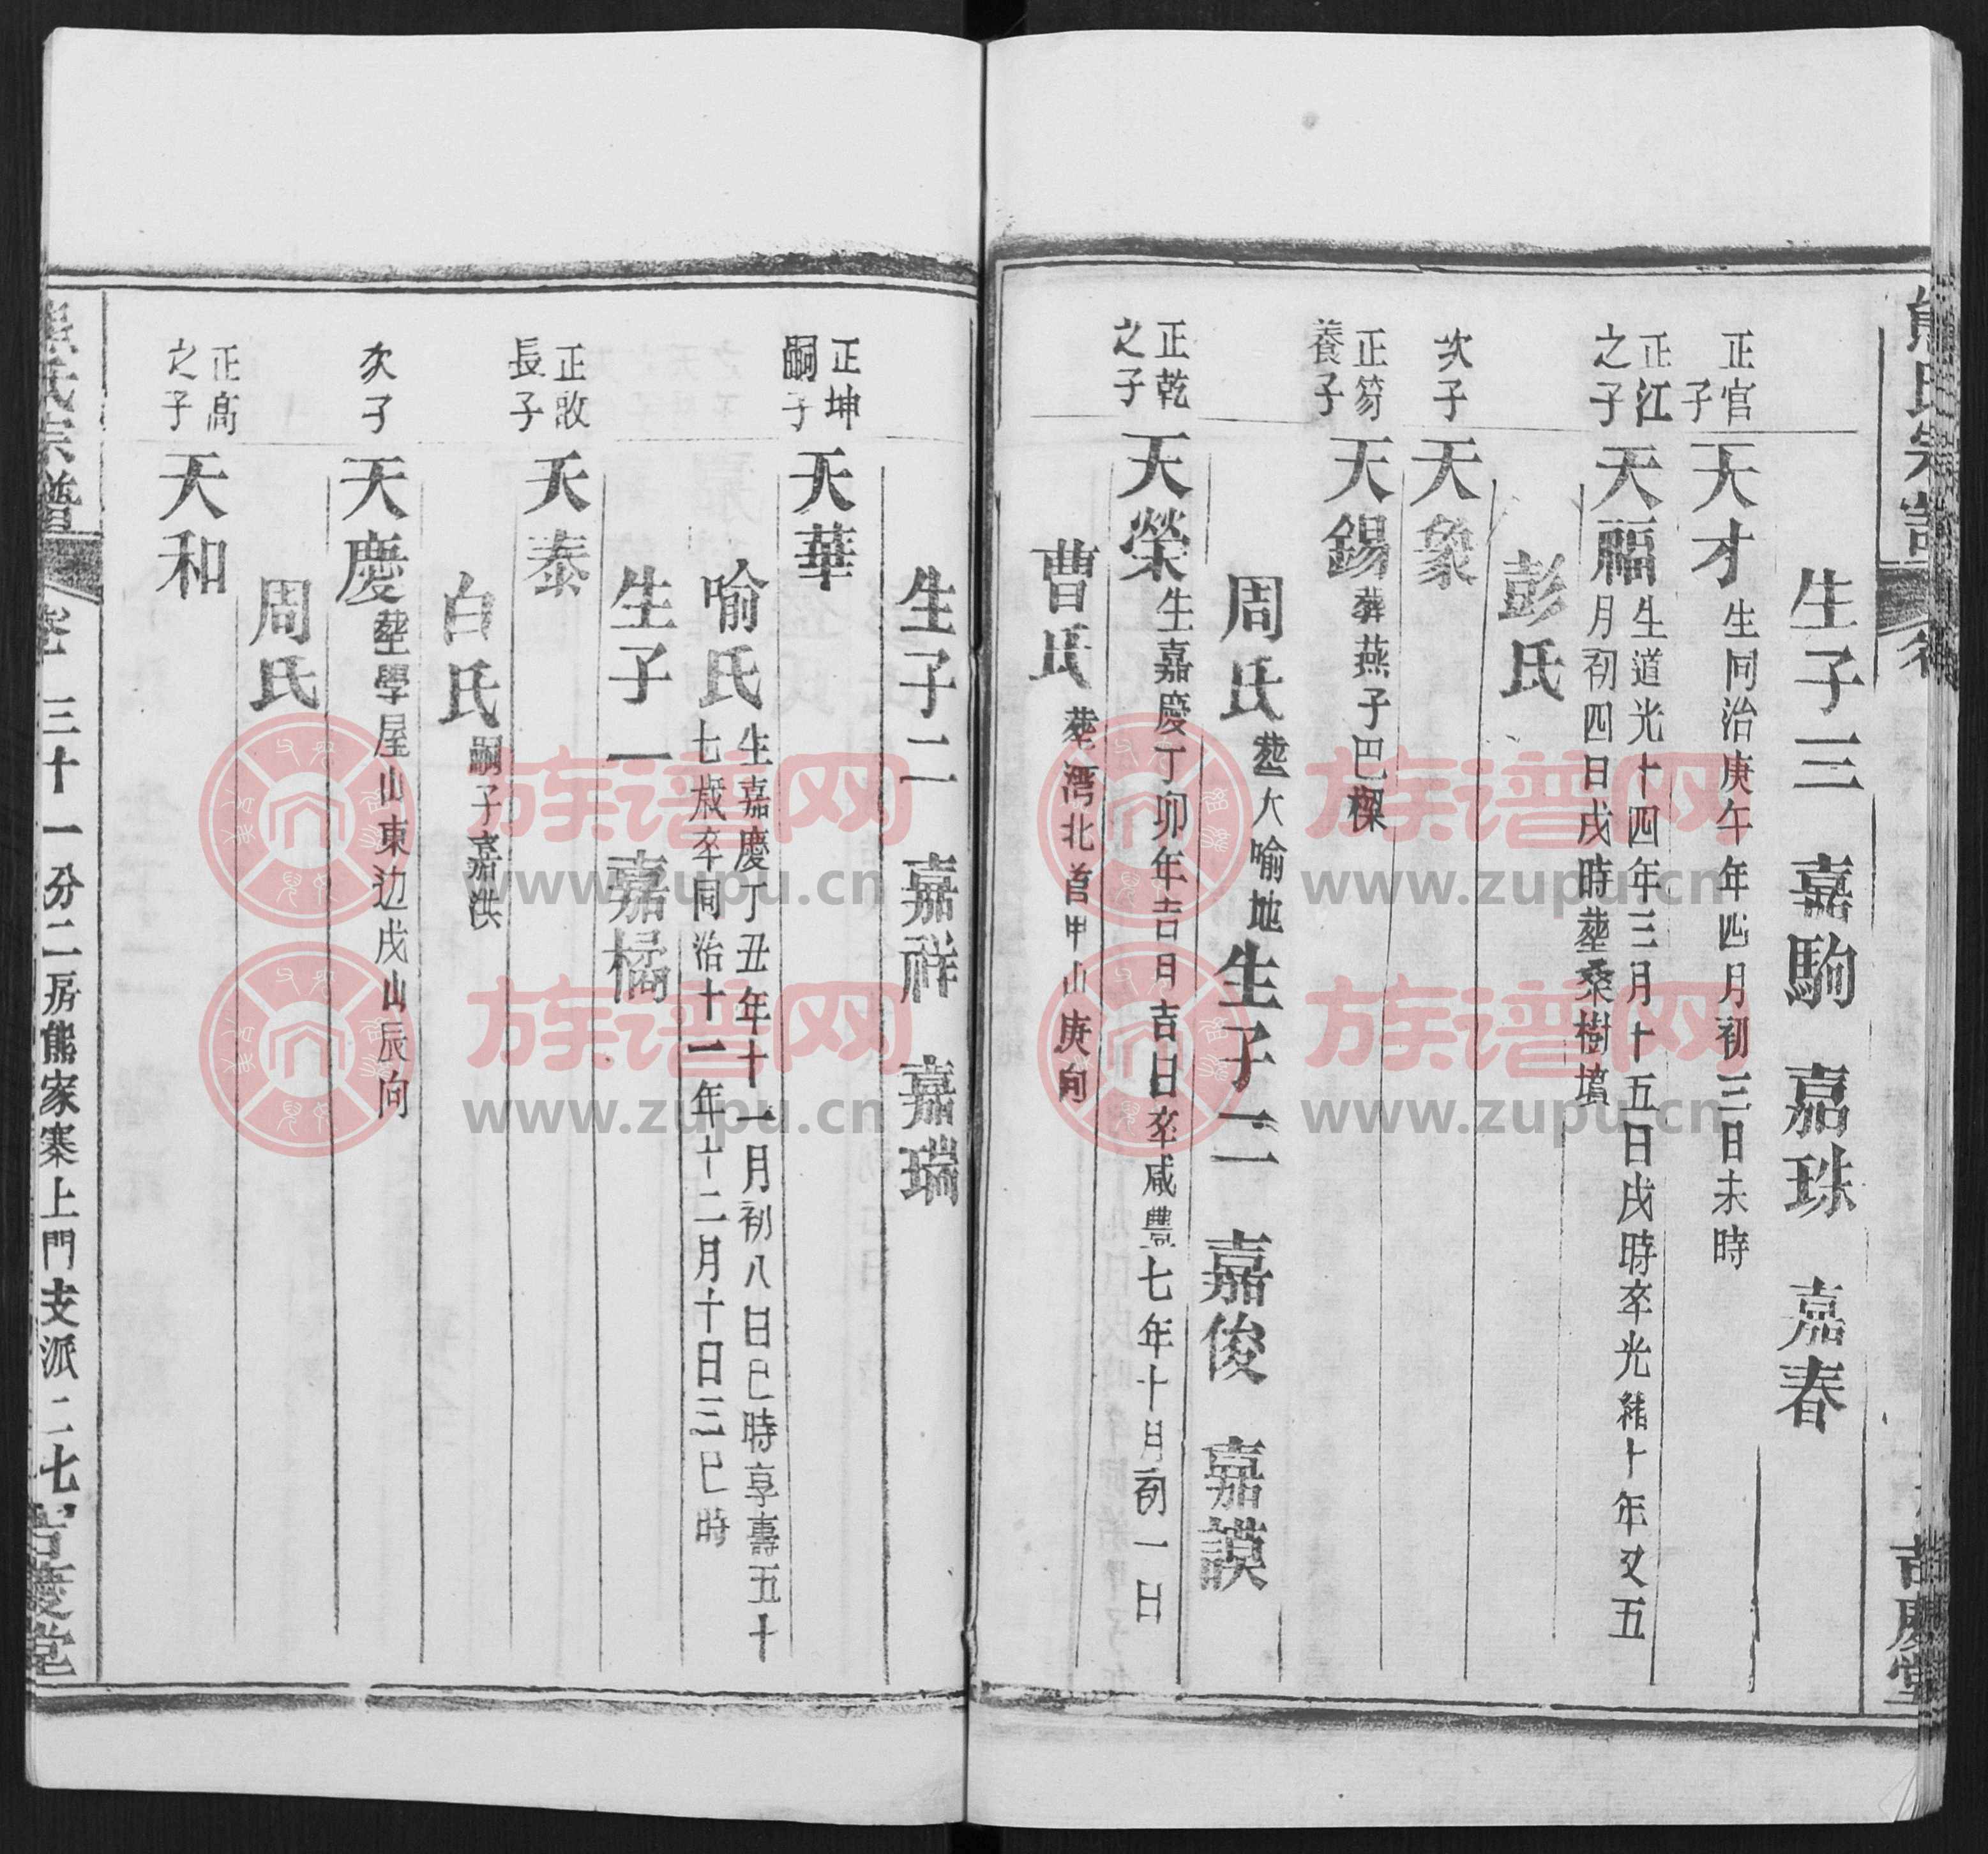 熊氏宗譜
吉慶堂
生子三 嘉駒 嘉珠 嘉春
正官子
天才 生同治庚午年四月初三日未時
正江之子
天福 生道光十四年三月十五日戌時卒光緒十年又五
月初四日戌時塟桑樹墳
彭氏
次子
天象
正笏養子
天錫 葬燕子巴樑
周氏 塟大喻地 生子二 嘉俊 嘉謨
正乾之子
天榮 生嘉慶丁卯年吉月吉日卒咸豐七年十月初一日
曹氏 塟灣北首甲山庚向
生子二 嘉祥 嘉瑞
正坤嗣子
天華
喻氏 生嘉慶丁丑年十一月初八日巳時享壽五十
七歲卒同治十一年十二月十日三巳時
生子一 嘉橘
正啟長子
天泰
白氏 嗣子嘉洪
次子
天慶 塟學屋山東边戌山辰向
周氏
正高之子
天和
熊氏宗譜
卷 三十一分二房熊家寨上門支派二七
吉慶堂
族谱网
www.zupu.cn
族谱网
www.zupu.cn
族谱网
www.zupu.cn
族谱网
www.zupu.cn